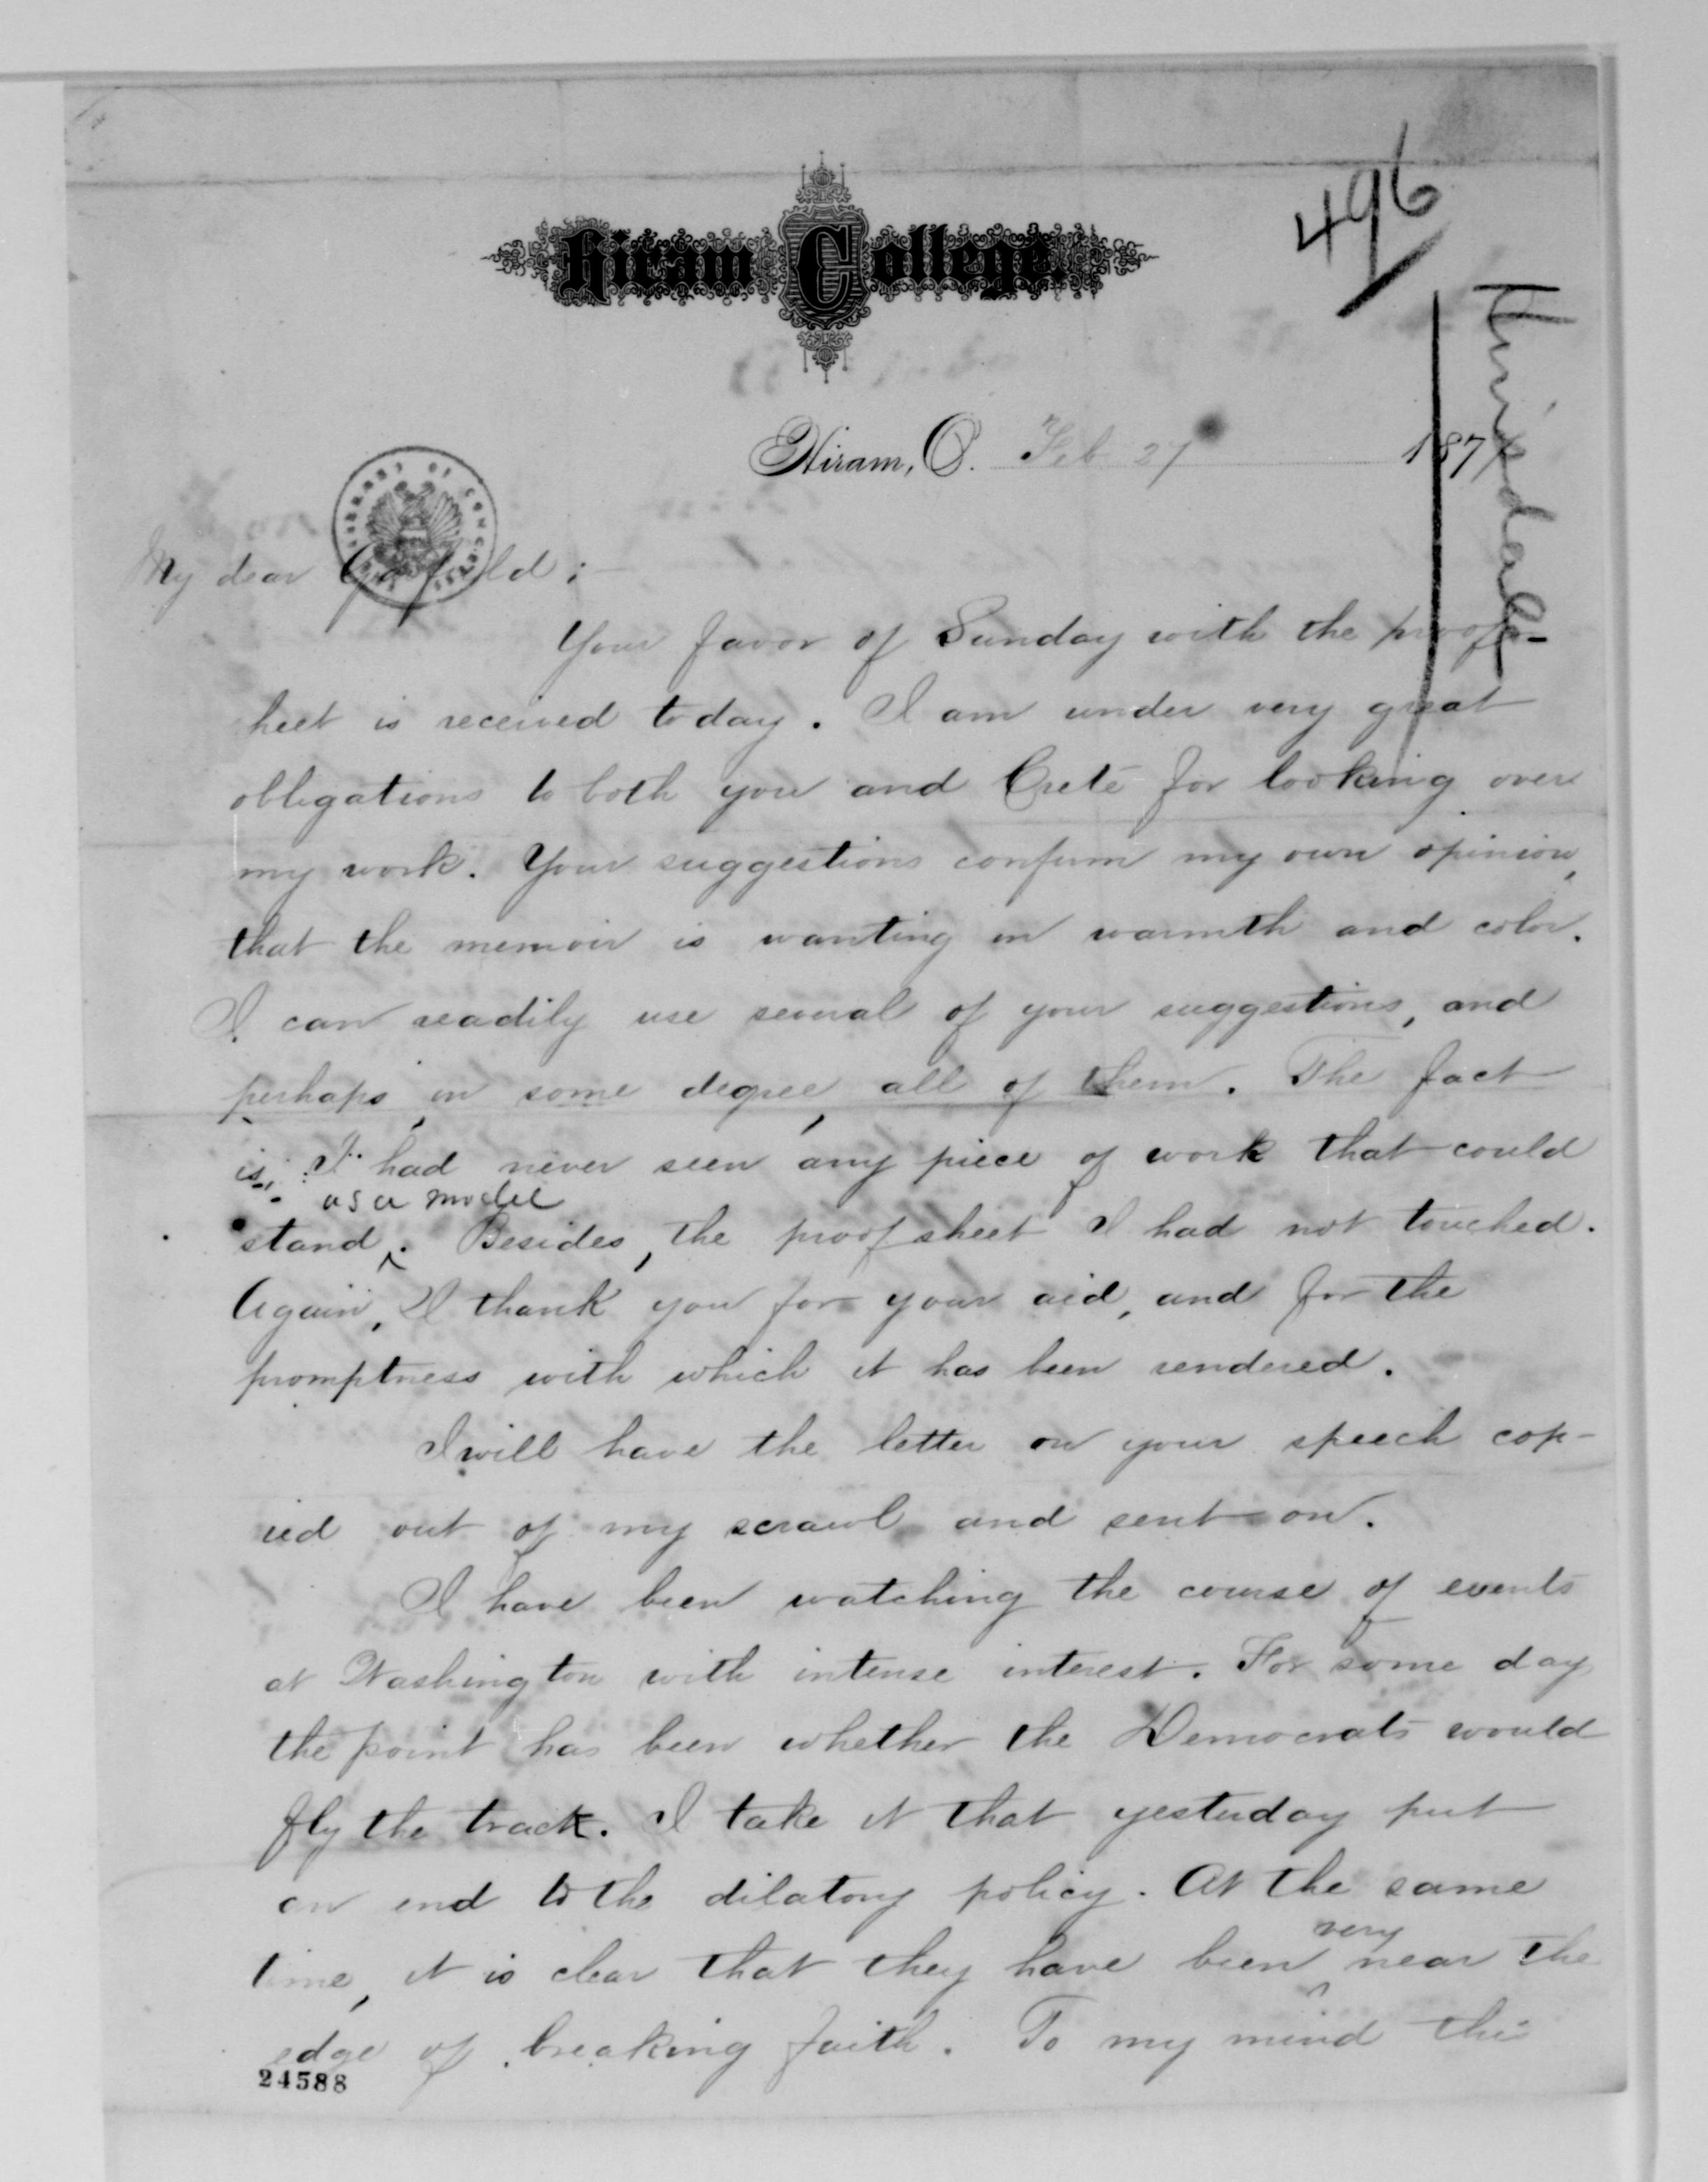 496
Hinsdale
Hiram College.
Hiram, O. Feb 27 187
LIBRARY OF CONGRESS
My dear Garfield:—
Your favor of Sunday with the proofs-
heet is received today. I am under very great
obligations to both you and Crete for looking over
my work. Your suggestions confirm my own opinion,
that the memoir is wanting in warmth and color.
I can readily use several of your suggestions, and
perhaps, in some degree, all of them. The fact
is, I had never seen any piece of work that could
as a model
stand ^. Besides, the proof sheet I had not touched.
Again, I thank you for your aid, and for the
promptness with which it has been rendered.
I will have the letter on your speech cop-
ied out of my scrawl and sent on.
I have been watching the course of events
at Washington with intense interest. For some day
the point has been whether the Democrats would
fly the track. I take it that yesterday put
an end to the dilatory policy. At the same
very
time, it is clear that they have been ^ near the
edge of breaking faith. To my mind the
24588